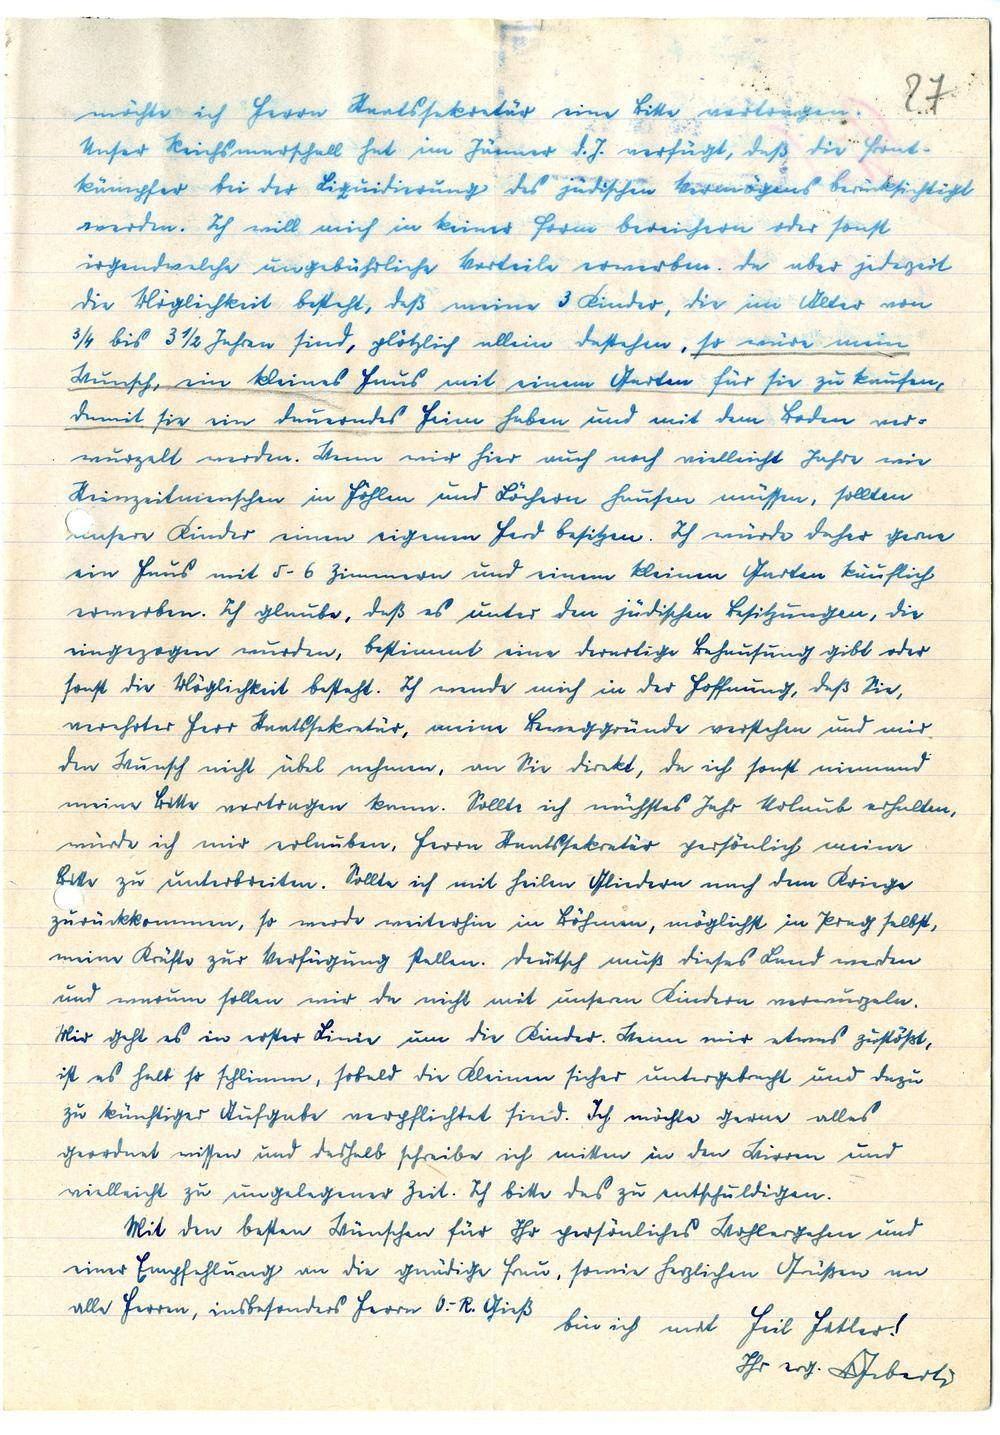 27
möchte ich Herrn Staatssekretär eine Bitte vortragen.
Unser Reichsmarschall hat im Jänner d.J. verfügt, daß die Front-
kämpfer bei der Liquidierung des jüdischen Vermögens berücksichtigt
werden. Ich will mich in keiner Form bereichern oder sonst
irgendwelche ungebührliche Vorteile erwerben. Da aber jederzeit
die Möglichkeit besteht, daß meine 3 Kinder, die im Alter von
3/4 bis 3 1/2 Jahren sind, plötzlich allein dastehen, so wäre mein
Wunsch, ein kleines Haus mit einem Garten für sie zu kaufen,
damit sie ein dauerndes Heim haben und mit dem Boden ver=
wurzelt werden. Wenn wir hier auch noch vielleicht Jahre wie
Steinzeitmenschen in Höhlen und Löchern hausen müssen, sollten
unsere Kinder einen eigenen Herd besitzen. Ich würde daher gerne
ein Haus mit 5-6 Zimmern und einem kleinen Garten käuflich
erwerben. Ich glaube, daß es unter den jüdischen Besitzungen, die
eingezogen wurden, bestimmt eine derartige Behausung gibt oder
sonst die Möglichkeit besteht. Ich wende mich in der Hoffnung, daß Sie,
verehrter Herr Staatssekretär, meine Beweggründe verstehen und mir
den Wunsch nicht übel nehmen, an Sie direkt, da ich sonst niemand
meine Bitte vortragen kann. Sollte ich nächstes Jahr Urlaub erhalten,
würde ich mir erlauben, Herrn Staatssekretär persönlich meine
Bitte zu unterbreiten. Sollte ich mit heilen Gliedern nach dem Kriege
zurückkommen, so werde weiterhin in Böhmen, möglichst in Prag selbst,
meine Kräfte zur Verfügung stellen. Deutsch muß dieses Land werden
und warum sollen wir da nicht mit unseren Kindern verwurzeln.
Mir geht es in erster Linie um die Kinder. Wenn mir etwas zustößt,
ist es halb so schlimm, sobald die Kleinen sicher untergebracht und dazu
zu künftiger Aufgabe verpflichtet sind. Ich möchte gerne alles
geordnet wissen und deshalb schreibe ich mitten in den Wirren und
vielleicht zu ungelegener Zeit. Ich bitte das zu entschuldigen.
Mit den besten Wünschen für Ihr persönliches Wohlergehen und
einer Empfehlung an die gnädige Frau, sowie herzlichen Grüßen an
alle Herren, insbesonders Herrn O.-R. Gieß
bin ich mit Heil Hitler!
Ihr erg.